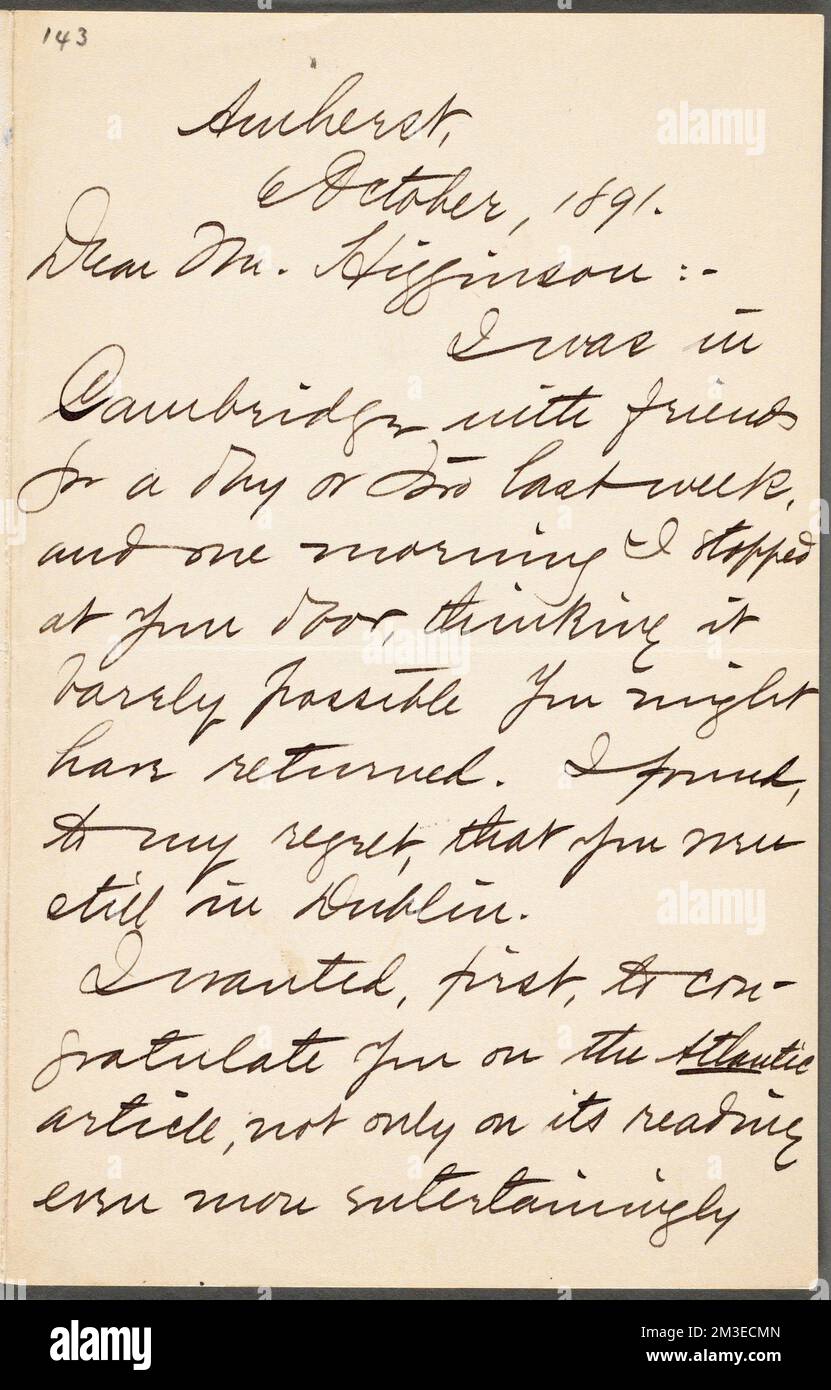 143
Amherst,
6 October, 1891.
Dear Mr. Higginson :-
I was in
Cambridge with friends
for a day or two last week,
and one morning I stopped
at your door, thinking it
barely possible you might
have returned. I found,
to my regret, that you were
still in Dublin.
I wanted, first, to con-
gratulate you on the Atlantic
article, not only on its reading
even more entertainingly
a
alamy
alamy
a
alamy
a
alamy
Image ID: 2M3ECMN
www.alamy.com